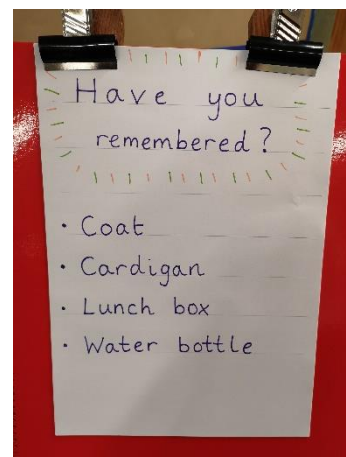 Have you
remembered?
· Coat
· Cardigan
· Lunch box
· Water bottle